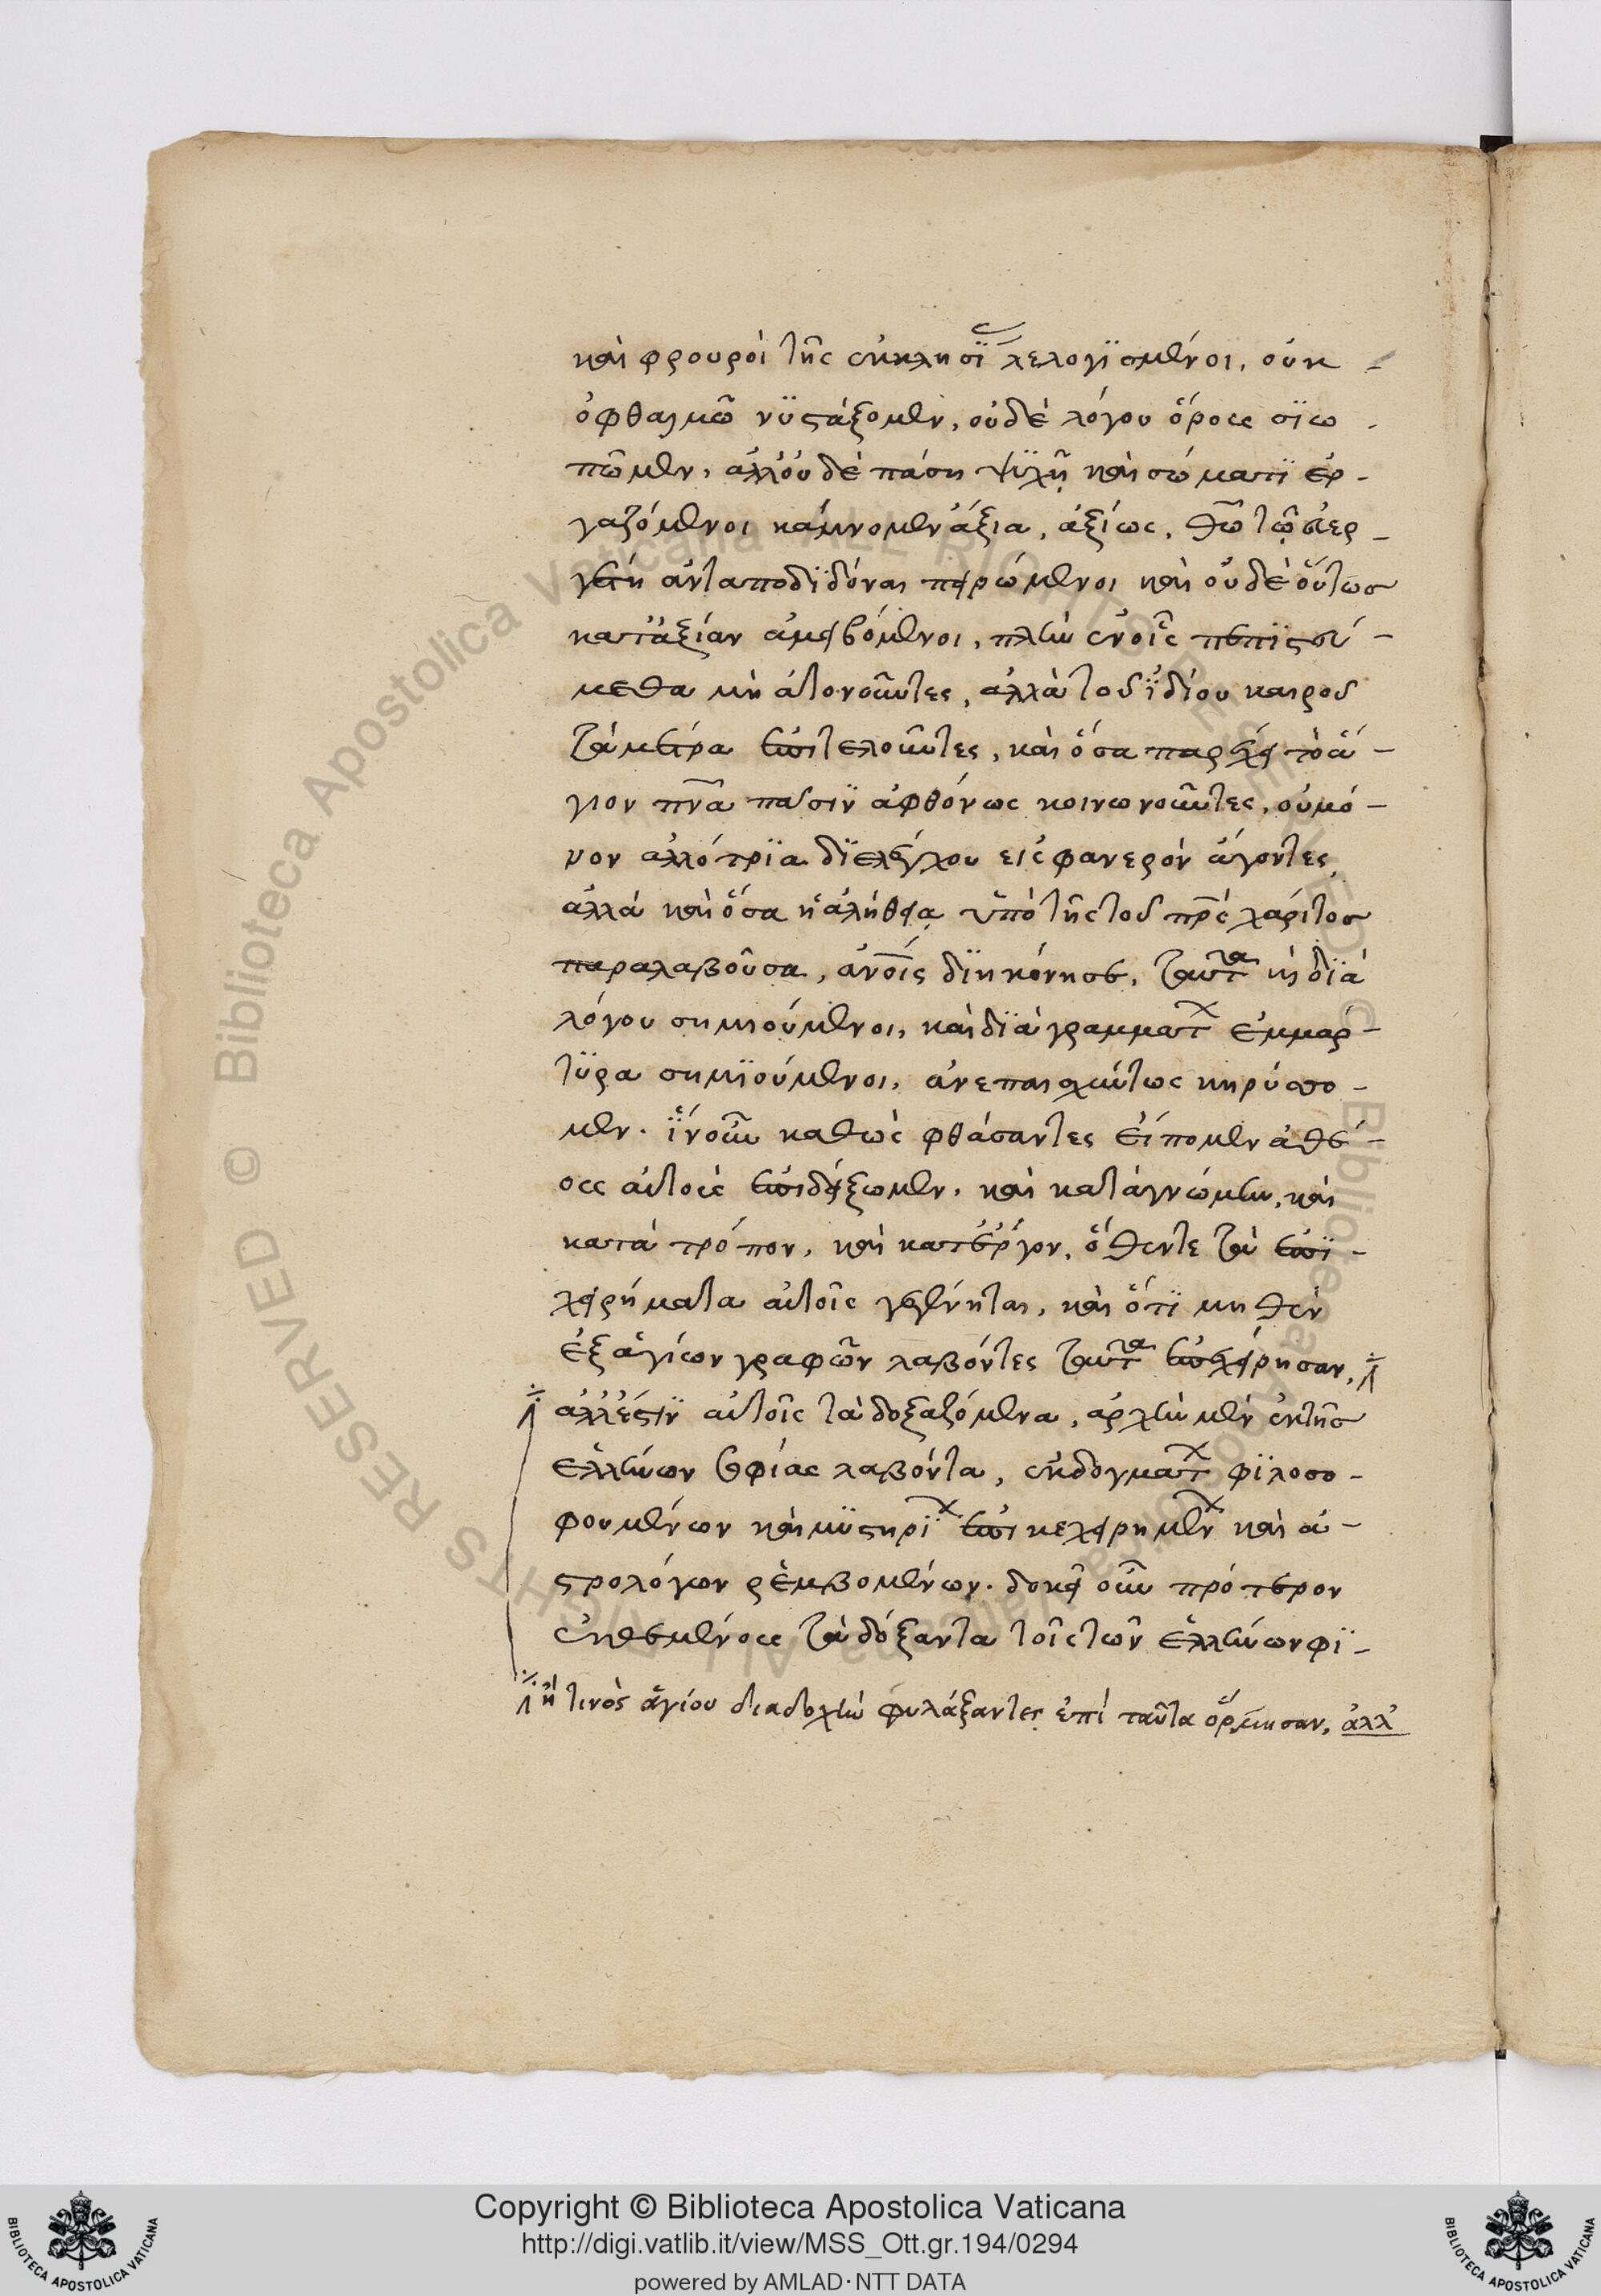 καὶ φρουροὶ τῆς ἐκκλησί λελογισμένοι, οὐκ
ὀφθαλμῶ νυστάξομεν, οὐδὲ λόγου ὅρους σιω
πῶμεν, ἀλλ' οὐδὲ πάση ψυχῆ καὶ σώματι ἐρ-
γαζόμενοι κάμνομεν ἄξια, ἀξίως, θῶ τῶ εὐερ-
γέτη ἀνταποδιδόναι πειρώμενοι καὶ οὐδὲ οὕτως
κατ' ἀξίαν ἀμειβόμενοι, πλὴν ἐν οἷς πεπιστεύ-
μεθα μὴ ἀτονοῦντες, ἀλλὰ τοῦ ἰδίου καιροῦ
τὰ μέτρα ἐπιτελοῦντες, καὶ ὅσα παρέχει τὸ ἅ-
γιον πνᾶ πᾶσιν ἀφθόνως κοινωνοῦντες, οὐ μό-
νον ἀλλότρια δι' ἐλέγχου εἰς φανερὸν ἄγοντες,
ἀλλὰ καὶ ὅσα ἡ ἀλήθεια ὑπὸ τῆς τοῦ πρς χάριτος
παραλαβοῦσα, ἀνοις διηκόνησε, ταῦτα κὶ διὰ
λόγου σημιούμενοι, καὶ διὰ γραμματ ἐμμάρ-
τυρα σημιούμενοι, ἀνεπαισχύντως κηρύσσο-
μεν. ἵν' οὖν καθὼς φθάσαντες εἴπομεν ἀθέ-
ους αὐτοὺς ἐπιδείξωμεν, καὶ κατὰ γνώμην, καὶ
κατὰ τρόπον, καὶ κατ' ἔργον, ὅθεν τε τὰ ἐπι-
χειρήματα αὐτοῖς γεγένηται, καὶ ὅτι μηθὲν
ἐξ ἁγίων γραφῶν λαβόντες ταῦτα ἐπεχείρησαν,
ἀλλ' ἔστιν αὐτοῖς τὰ δοξαζόμενα, ἀρχὴν μὲν ἐκ τῆς
ἑλλήνων σοφίας λαβόντα, ἐκ δογματ φιλοσο-
φουμένων καὶ μυστηρι ἐπικεχειρημεν καὶ ἀ-
στρολόγων ῥεμβομένων. δοκεῖ οὖν πρότερον
ἐκθεμένους τὰ δόξαντα τοῖς τῶν ἑλλήνων φι-
ἢ τινὸς ἁγίου διαδοχὴν φυλάξαντες ἐπὶ ταῦτα ὅρμησαν, ἀλλ'
Copyright © Biblioteca Apostolica Vaticana
http://digi.vatlib.it/view/MSS_Ott.gr.194/0294
powered by AMLAD·NTT DATA